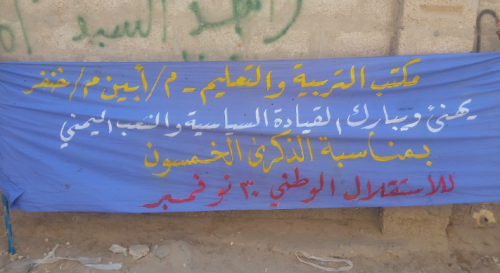 السيد
مكتب التربية والتعليم - م/أبين م/خنفر
يهنئ ويبارك القيادة السياسية والشعب اليمني
بمناسبة الذكرى الخمسون
للاستقلال الوطني ٣٠ نوفمبر